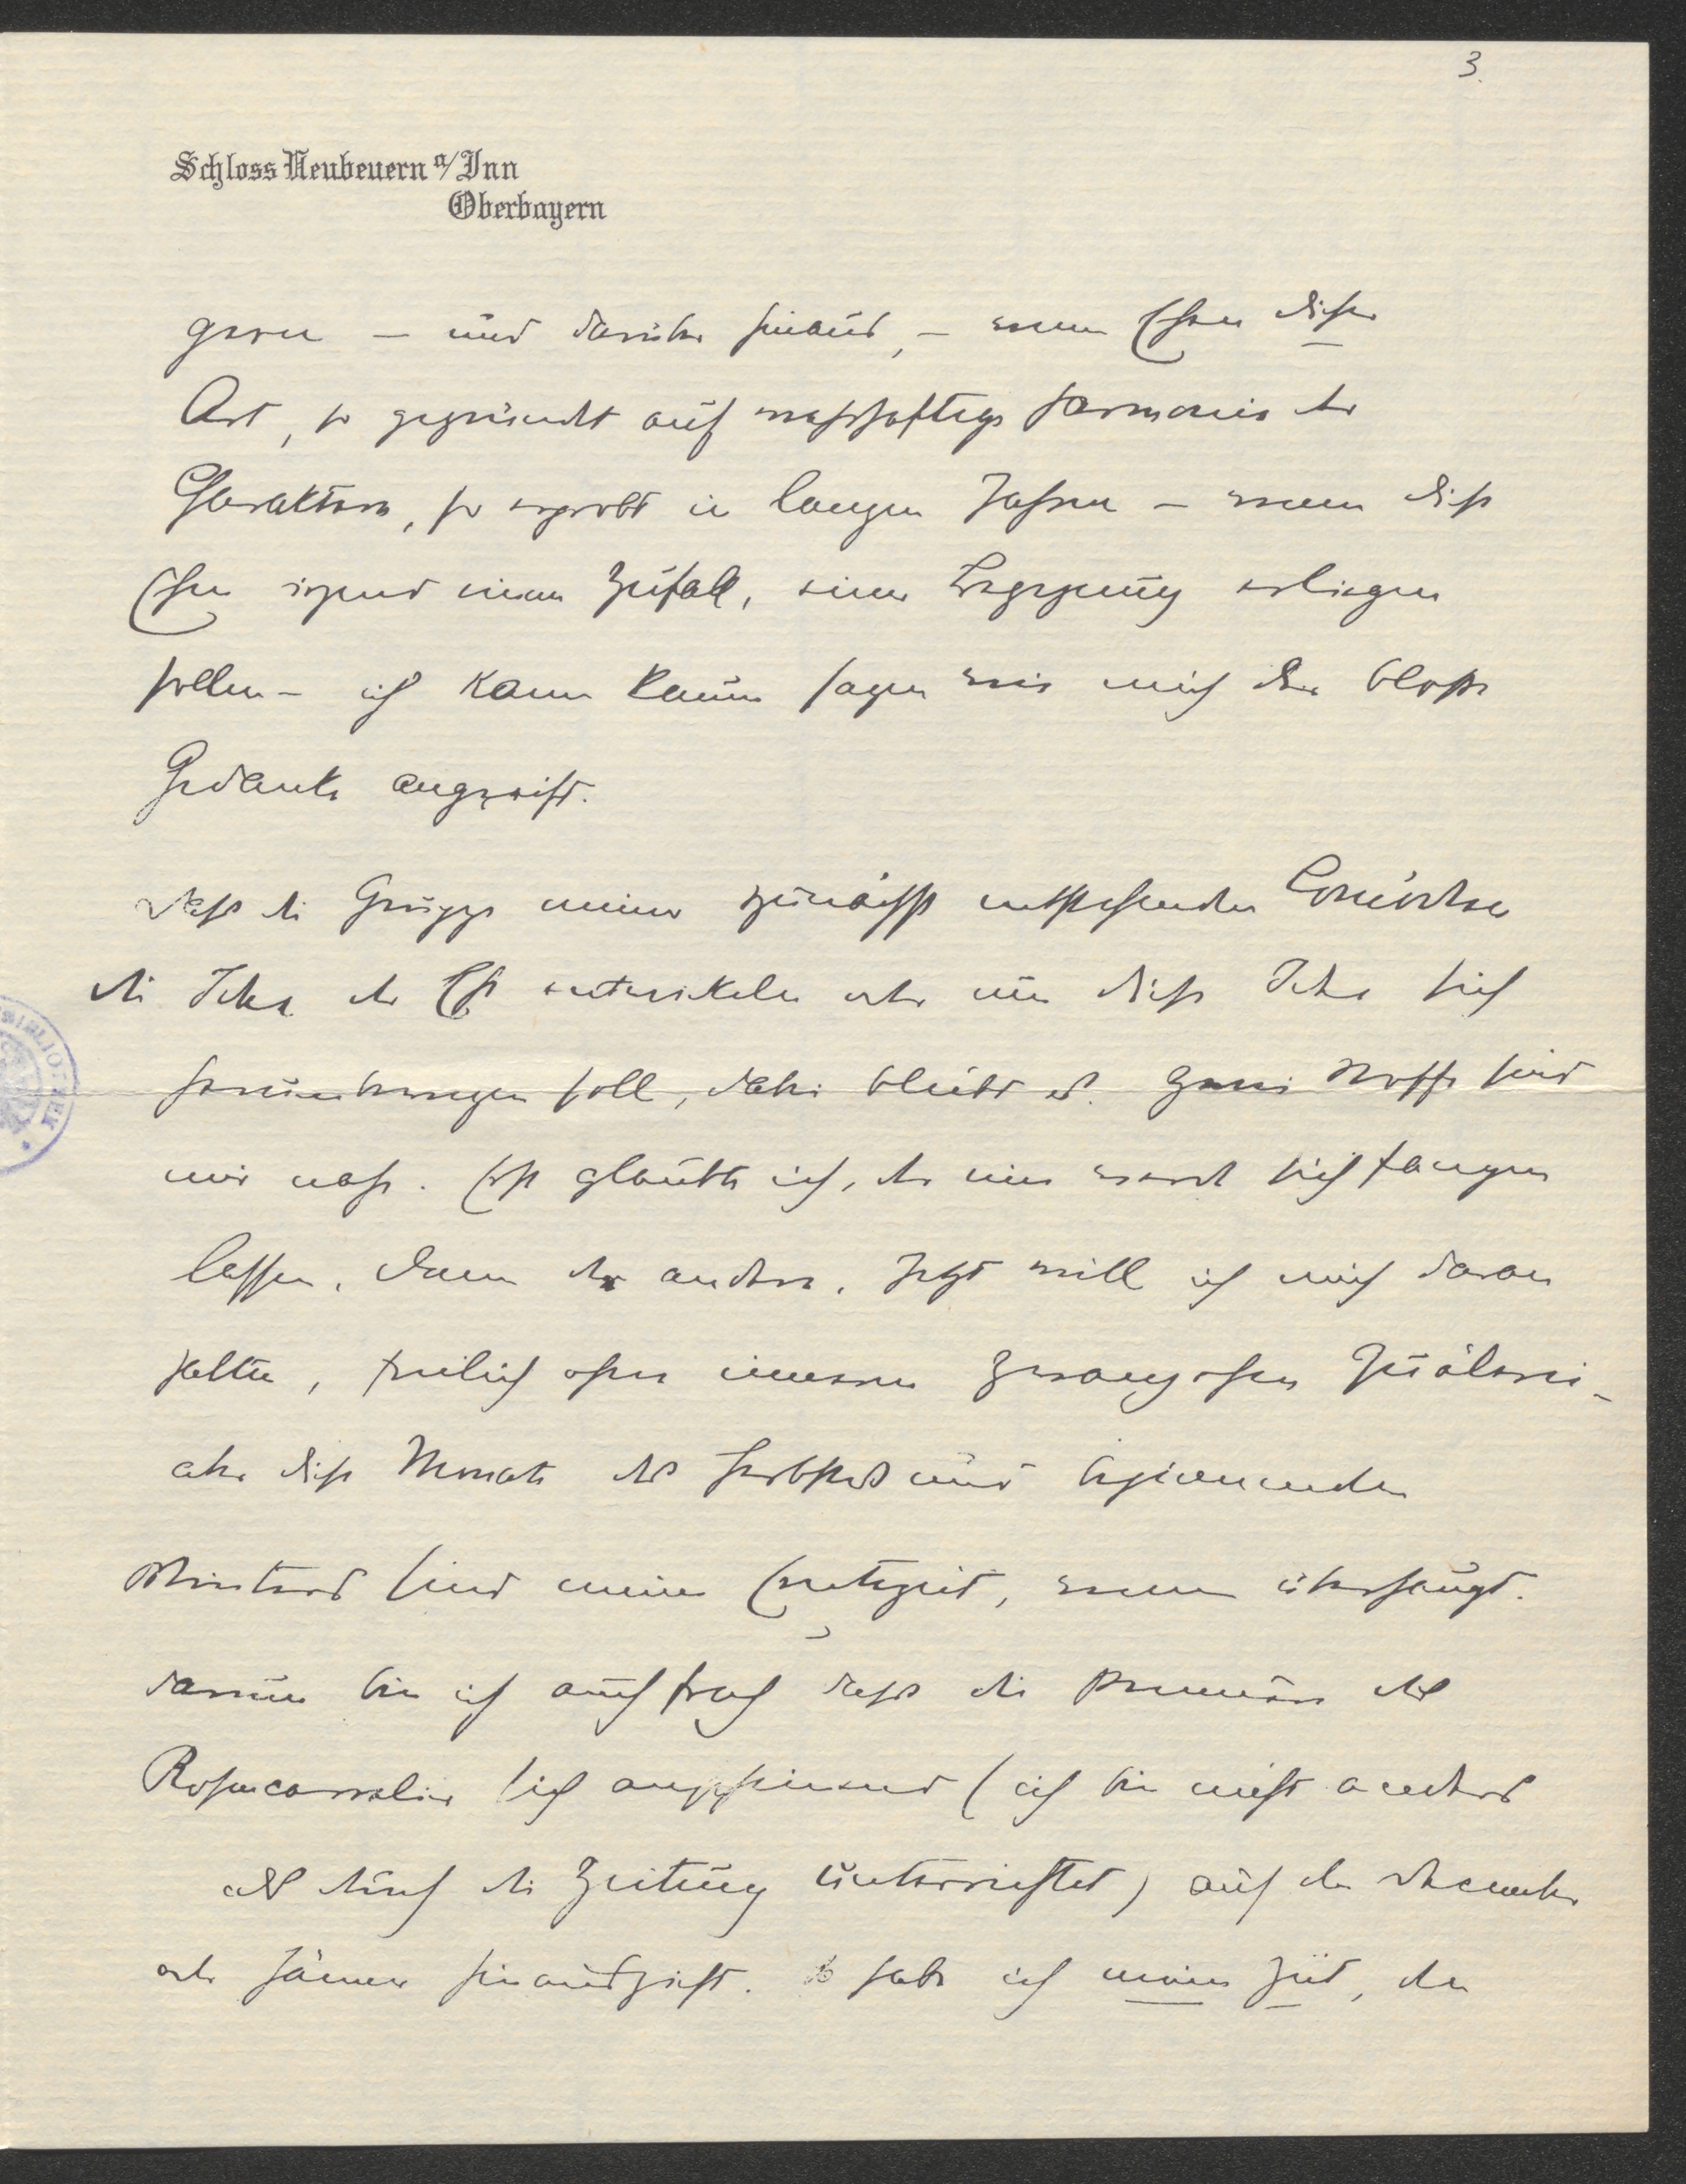 3.
Schloss Neubeuern a/Inn
Oberbayern
gern — und darüber hinaus, — wenn Ehen dieser
Art, so gegründet auf wahrhaftige Harmonie der
Charaktere, so erprobt in langen Jahren — wenn diese
Ehen irgend einem Zufall, einer Begegnung erliegen
sollen — ich kann kaum sagen wie mich der blosse
Gedanke angreift.
Dass die Gruppe meiner zunächst entstehenden Comödien
die Idee der Ehe entwickeln oder um diese Idee sich
herumbewegen soll, dabei bleibt es. Zwei Stoffe sind
mir nah. Erst glaubte ich, der eine werde sich fangen
lassen, dann der andere. Jetzt will ich mich daran
halten, freilich ohne inneren Zwang ohne Quälerei –
aber diese Monate des Herbstes und beginnenden
Winters sind meine Erntezeit, wenn überhaupt.
Darum bin ich auch froh dass die Première des
Rosencavalier sich anscheinend (ich bin nicht anders
als durch die Zeitung unterrichtet) auf den December
oder Jänner hinauszieht. So habe ich meine Zeit, den